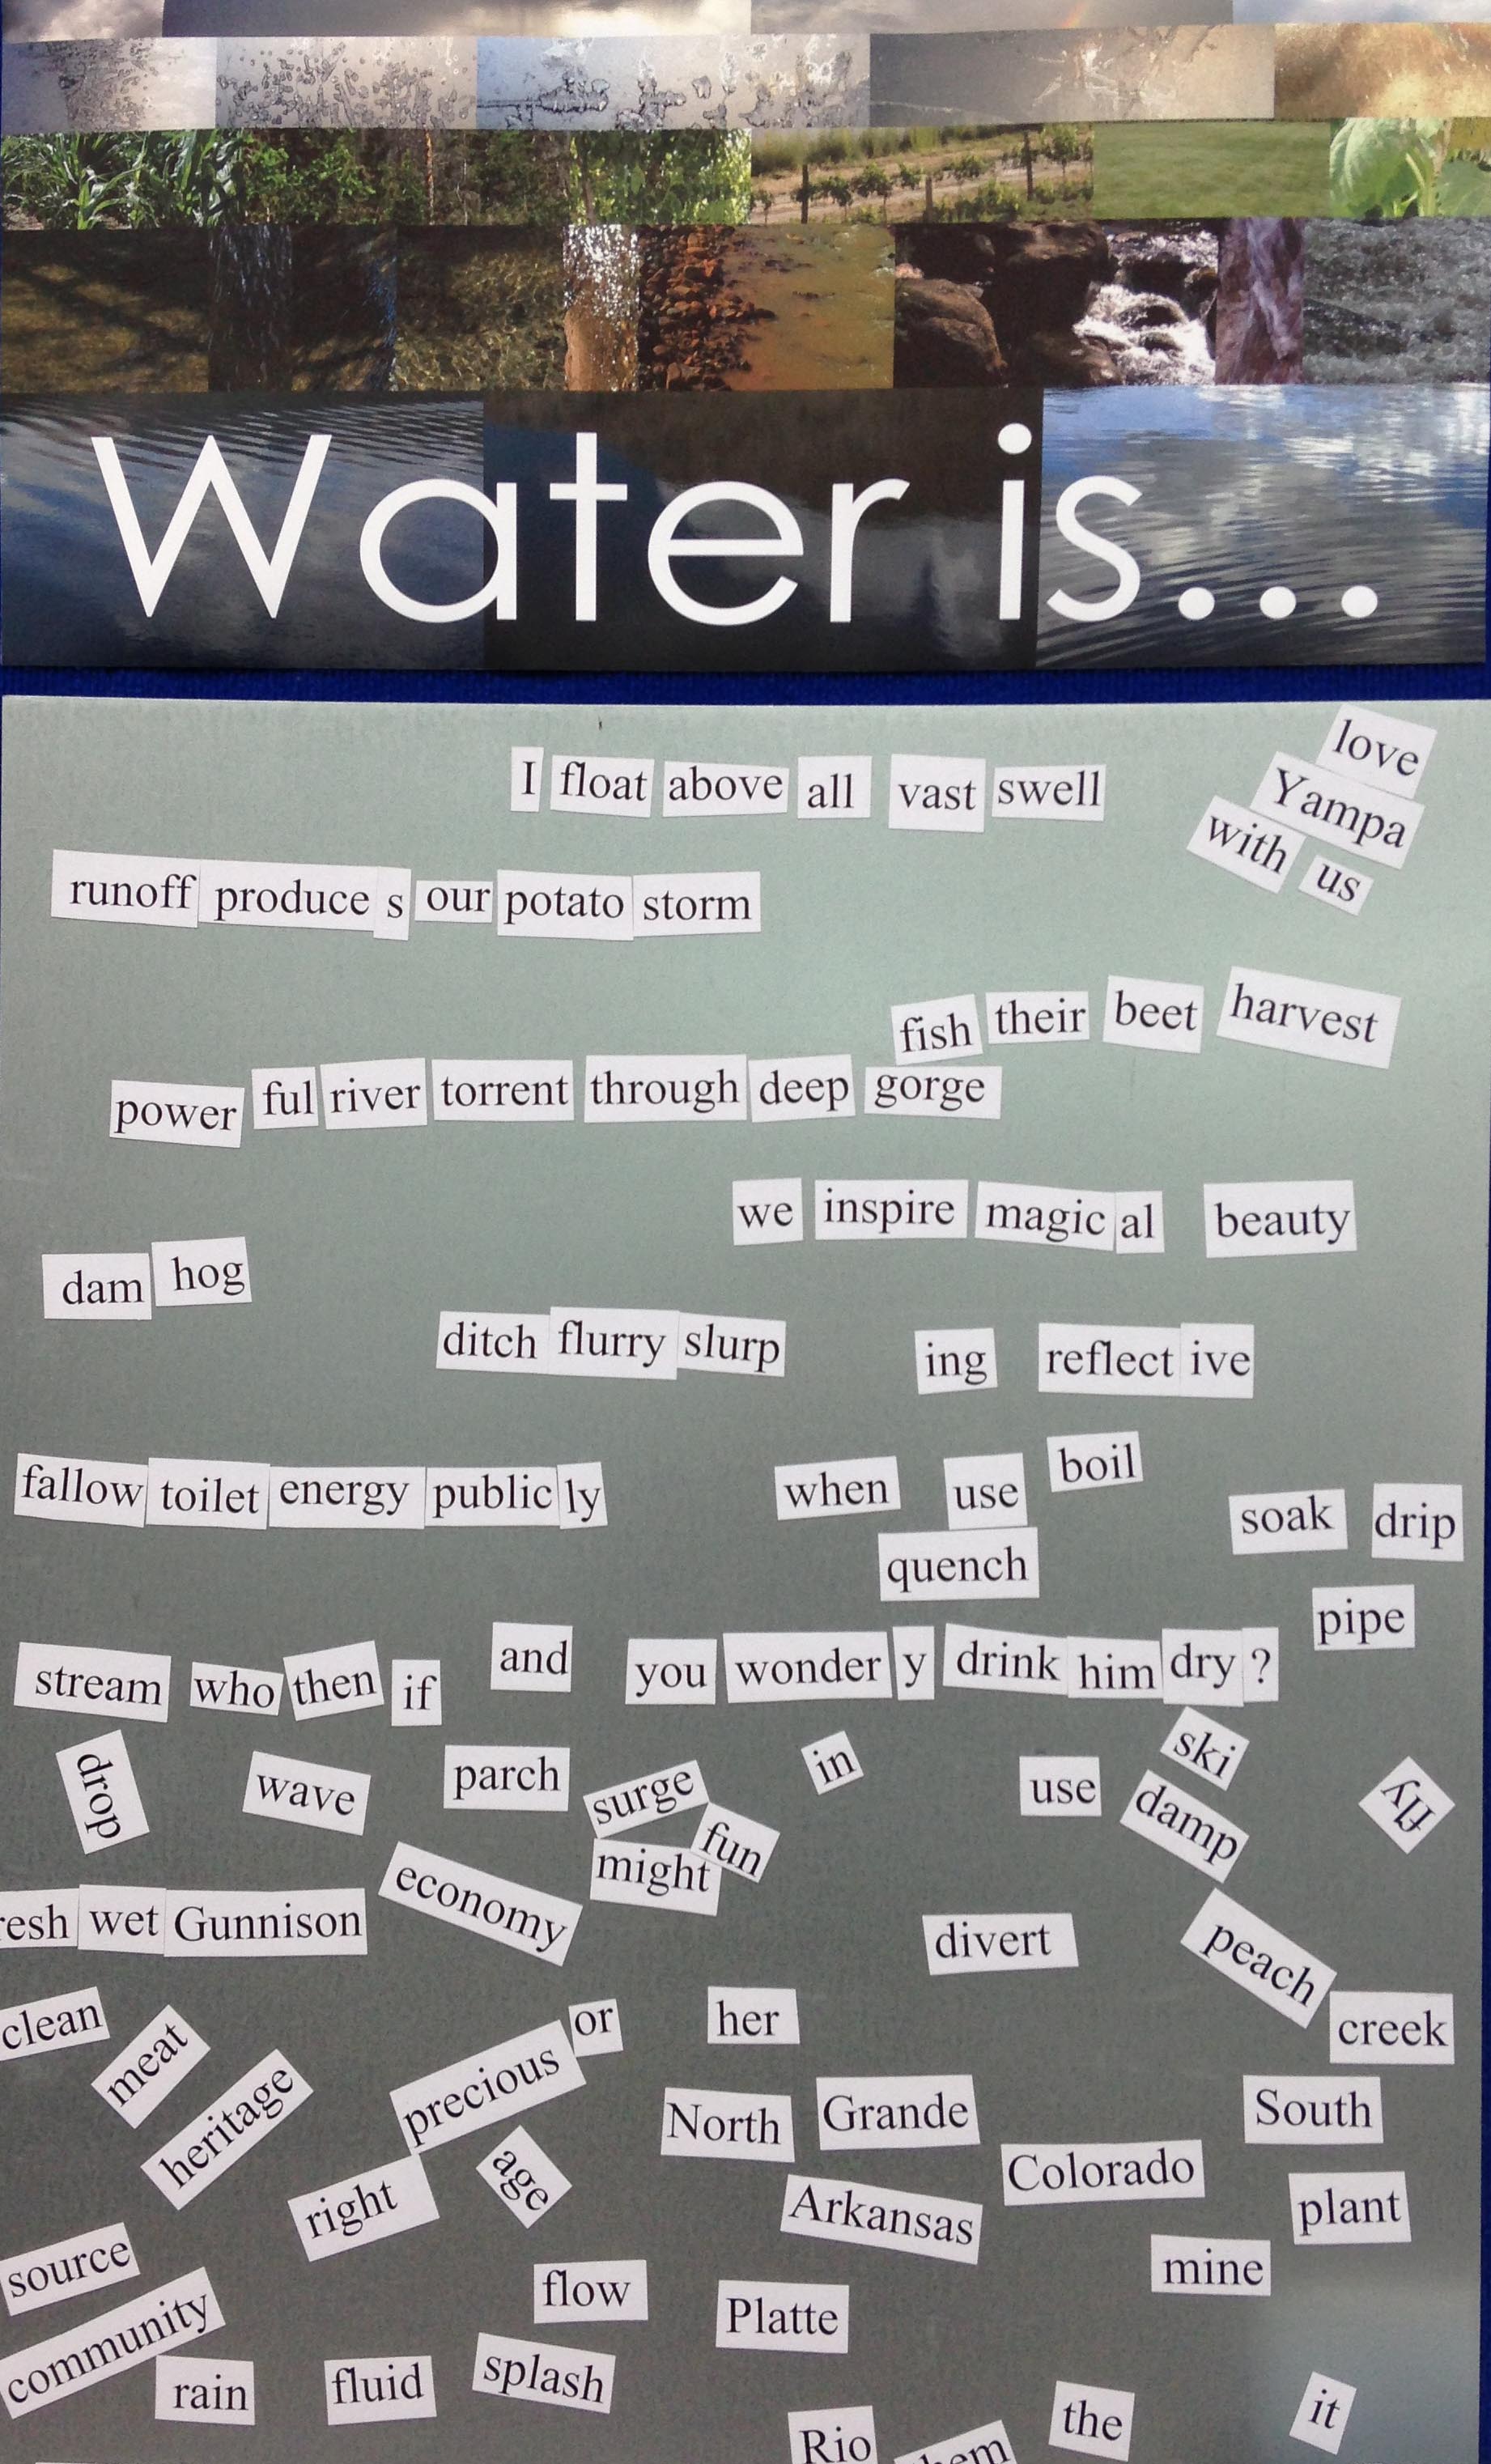 Water is...
I float above all vast swell
love
Yampa
with us
runoff produce s our potato storm
fish their beet harvest
power ful river torrent through deep gorge
we inspire magic al beauty
dam hog
ditch flurry slurp
ing reflect ive
fallow toilet energy public ly
when use boil
quench
soak drip
pipe
stream who then if and you wonder y drink him dry ?
drop wave parch surge in use ski fly
fun
might
damp
economy
resh wet Gunnison
divert
peach
creek
clean
meat
heritage
precious or her
North Grande South
age
right
Arkansas Colorado plant
source
mine
flow Platte
community
rain fluid splash
Rio the it
hem